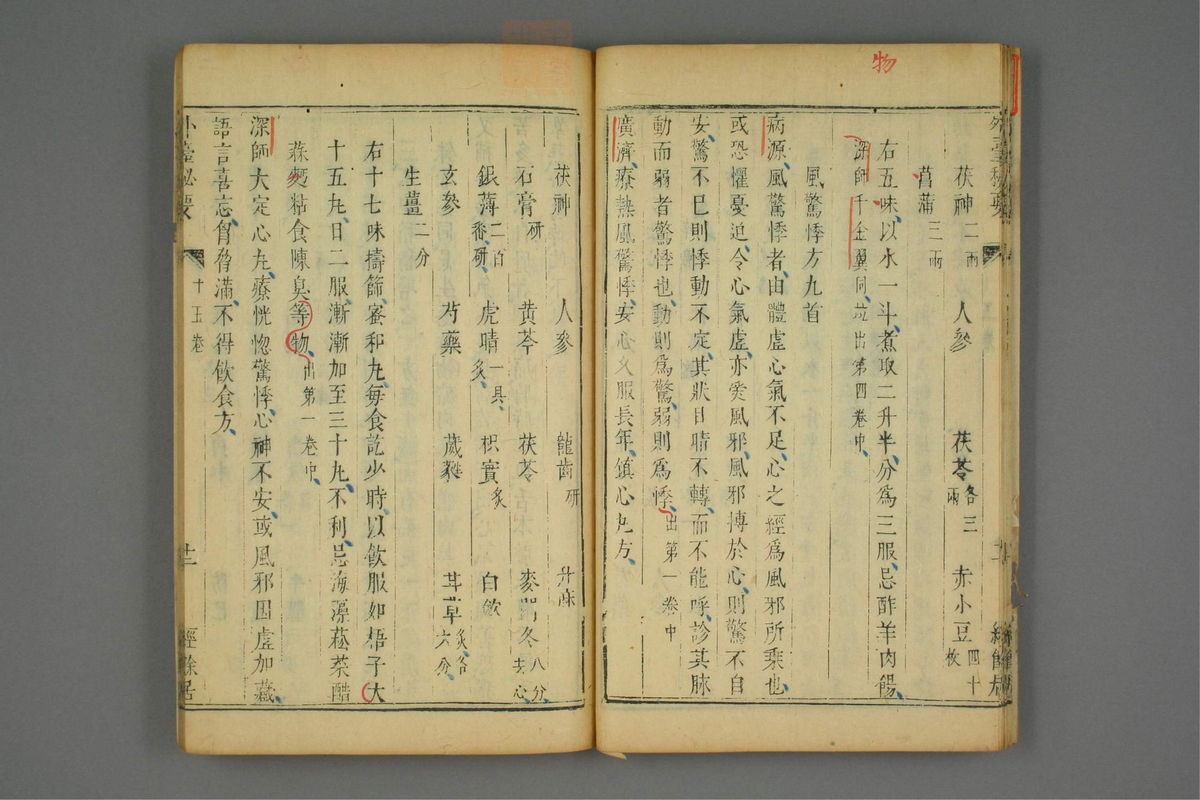 物
茯神二兩 人參 茯苓各三兩 赤小豆四十枚
菖蒲三兩
右五味以水一斗煮取二升半分爲三服忌酢羊肉餳
深師千金翼同並出第四卷中
風驚悸方九首
病源風驚悸者由體虛心氣不足心之經爲風邪所乘也
或恐懼憂迫令心氣虛亦受風邪風邪搏於心則驚不自
安驚不已則悸動不定其狀目睛不轉而不能呼診其脉
動而弱者驚悸也動則爲驚弱則爲悸出第一卷中
廣濟療熱風驚悸安心久服長年鎮心丸方
茯神 人參 龍齒研 升麻
石膏研 黃芩 茯苓 麥門冬八分去心
銀薄二百番研 虎睛一具炙 枳實炙 白斂
玄參 芍藥 葳蕤 甘草炙各六分
生薑二分
右十七味擣篩蜜和丸每食訖少時以飲服如梧子大
十五丸日二服漸漸加至三十丸不利忌海藻菘菜醋
蒜麫粘食陳臭等物出第一卷中
深師大定心丸療恍惚驚悸心神不安或風邪因虛加藏
語言喜忘胷脅滿不得飲食方
外臺秘要 十五卷 廿二 經餘居